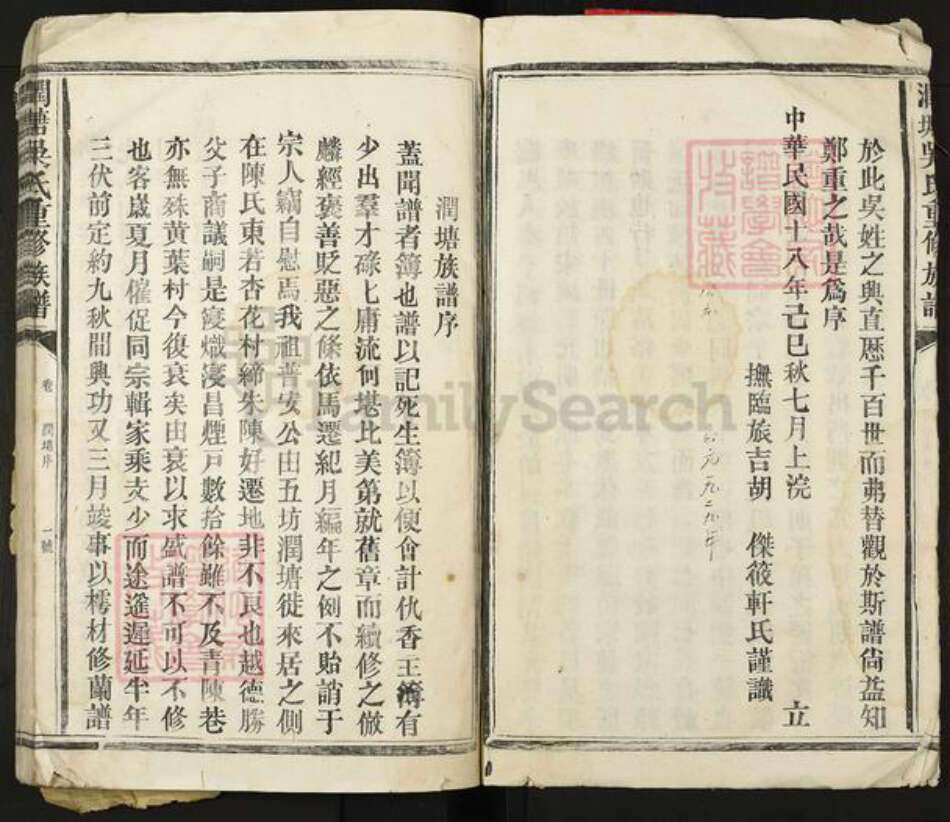 於此吳姓之興直歴千百世而弗替觀於斯譜尙益知
鄭重之哉是爲序
中華民國十八年己巳秋七月上浣 立
撫臨旅吉胡 傑筱軒氏謹識
公元一九二九年
潤塘吳氏重修族譜
潤塘族譜序
蓋聞譜者簿也譜以記死生簿以便會計仇香王簿有
少出羣才碌匕庸流何堪比美第就舊章而續修之倣
麟經褒善貶惡之條依馬遷紀月編年之例不貽誚于
宗人竊自慰焉我祖普安公由五坊潤塘徙來居之側
在陳氏東若杏花村締朱陳好遷地非不良也越德勝
父子商議嗣是寖熾寖昌煙戸數拾餘雖不及青陳巷
亦無殊黄葉村今復衰矣由衰以求盛譜不可以不修
也客歲夏月催促同宗輯家乘攴少而途遙遲延半年
三伏前定約九秋間興功又三月竣事以樗材修蘭譜
潤塘吳氏重修族譜
卷
潤塘序
一號
譜學會
收藏
FamilySearch